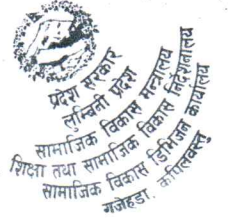 प्रदेश सरकार
लुम्बिनी प्रदेश
सामाजिक विकास मन्त्रालय
शिक्षा तथा सामाजिक विकास निर्देशनालय
सामाजिक विकास डिभिजन कार्यालय
गजेहडा, कपिलवस्तु